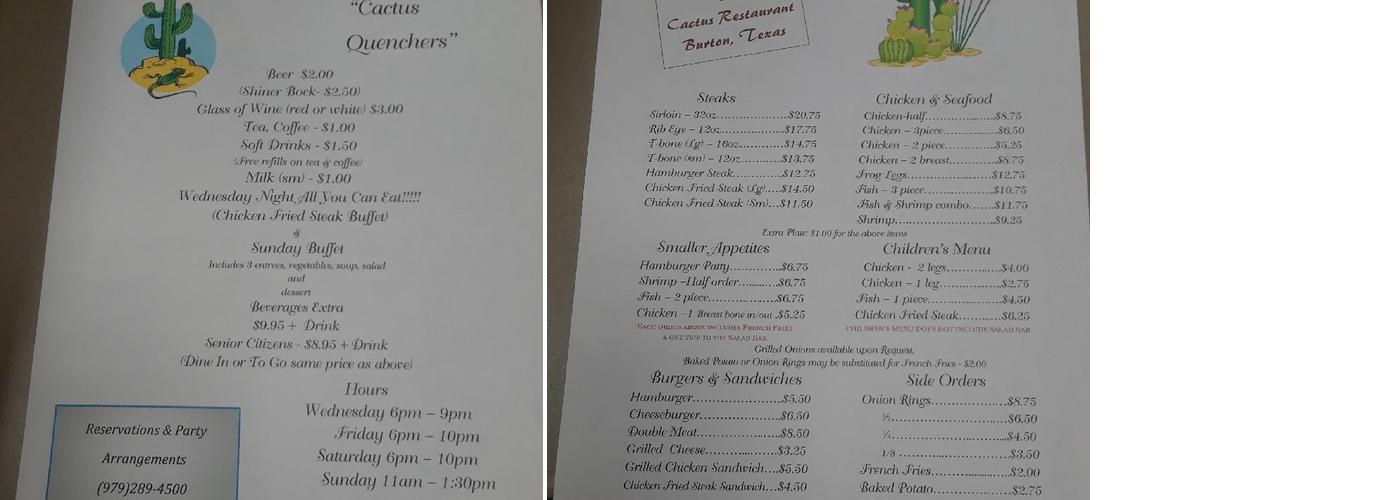 “Cactus
Quenchers”
Beer $2.00
(Shiner Bock- $2.50)
Glass of Wine (red or white) $3.00
Tea, Coffee - $1.00
Soft Drinks - $1.50
(Free refills on tea & coffee)
Milk (sm) - $1.00
Wednesday Night All You Can Eat!!!!!
(Chicken Fried Steak Buffet)
&
Sunday Buffet
Includes 3 entrees, vegetables, soup, salad
and
dessert
Beverages Extra
$9.95 + Drink
Senior Citizens - $8.95 + Drink
(Dine In or To Go same price as above)
Hours
Wednesday 6pm – 9pm
Friday 6pm – 10pm
Saturday 6pm – 10pm
Sunday 11am – 1:30pm
Reservations & Party
Arrangements
(979)289-4500
Cactus Restaurant
Burton, Texas
Steaks
Sirloin – 32oz.....................$20.75
Rib Eye – 12oz.....................$17.75
T-bone (Lg) – 16oz............$14.75
T-bone (sm) – 12oz............$13.75
Hamburger Steak...............$12.75
Chicken Fried Steak (Lg)....$14.50
Chicken Fried Steak (Sm)...$11.50
Chicken & Seafood
Chicken-half.....................$8.75
Chicken – 3piece................$6.50
Chicken – 2 piece...............$5.25
Chicken – 2 breast..............$8.75
Frog Legs.........................$12.75
Fish – 3 piece....................$10.75
Fish & Shrimp combo.......$11.75
Shrimp............................$9.25
Extra Plate: $1.00 for the above items
Smaller Appetites
Hamburger Patty...............$6.75
Shrimp –Half order............$6.75
Fish – 2 piece....................$6.75
Chicken –1 Breast bone in/out .$5.25
Each order above includes French Fries
& one trip to the Salad Bar.
Children’s Menu
Chicken - 2 legs................$4.00
Chicken – 1 leg..................$2.75
Fish – 1 piece....................$4.50
Chicken Fried Steak...........$6.25
Children’s menu does not include salad bar
Grilled Onions available upon Request.
Baked Potato or Onion Rings may be substituted for French Fries - $2.00
Burgers & Sandwiches
Hamburger.......................$5.50
Cheeseburger.....................$6.50
Double Meat.....................$8.50
Grilled Cheese..................$3.25
Grilled Chicken Sandwich...$5.50
Chicken Fried Steak Sandwich...$4.50
Side Orders
Onion Rings.....................$8.75
½.............................$6.50
¼.............................$4.50
1/8 ...........................$3.50
French Fries.....................$2.00
Baked Potato....................$2.75